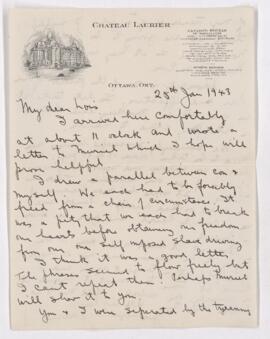 CHATEAU LAURIER
OTTAWA, ONT.
25th Jan 1943
My dear Lois
I arrived here comfortably
at about 11 oclock and wrote a
letter to Muriel which I hope will
prove helpful
I drew a parallel between you &
myself. We each had to be forcibly
freed from a chain of circumstances. It
was a pity that we each had to break
our hearts before obtaining our freedom
from our own self imposed slave driving
I think it was a good letter,
the phrases seemed to flow freely but
I can't repeat them. Perhaps Muriel
will show it to you.
You & I were separated by the tyranny